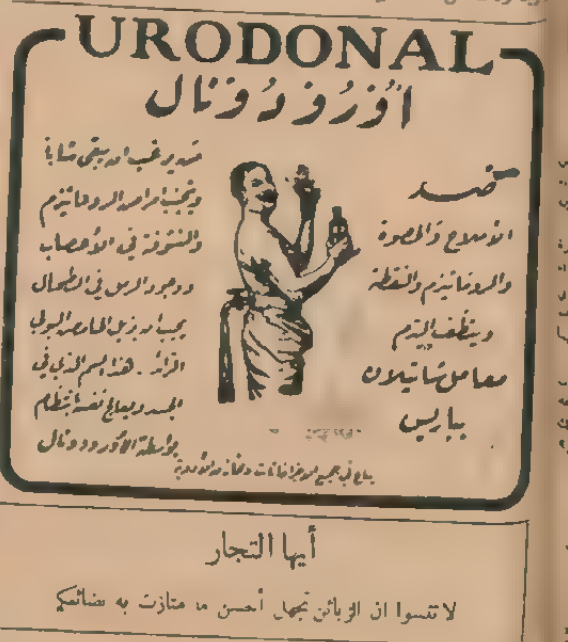 URODONAL
أوزرودونال
ضد
الأملاح والحصوة
والروماتيزم والنقطة
وينظف الدم
معامل شاتيلان
بباريس
يبقى شابا
ويتجنب امراض الروماتيزم
في الأعصاب
ووجود الرمل في الطحال
يجب ان يزيل الحامض البولي
الزائد . هذا السم الذي في
الجسد ويعالج نفسه بانتظام
بواسطة الأورودونال
يباع في جميع الاجزاخانات ومخازن الأدوية
أيها التجار
لا تنسوا ان الزبائن تجهل أحسن ما متازت به بضائعكم